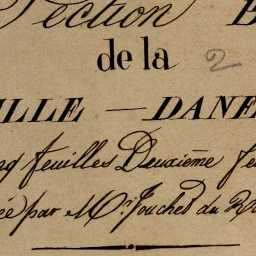 Section B
de la 2
ILLE — DANE
nq feuilles Deuxième fe
ée par Mr. Jouched du R